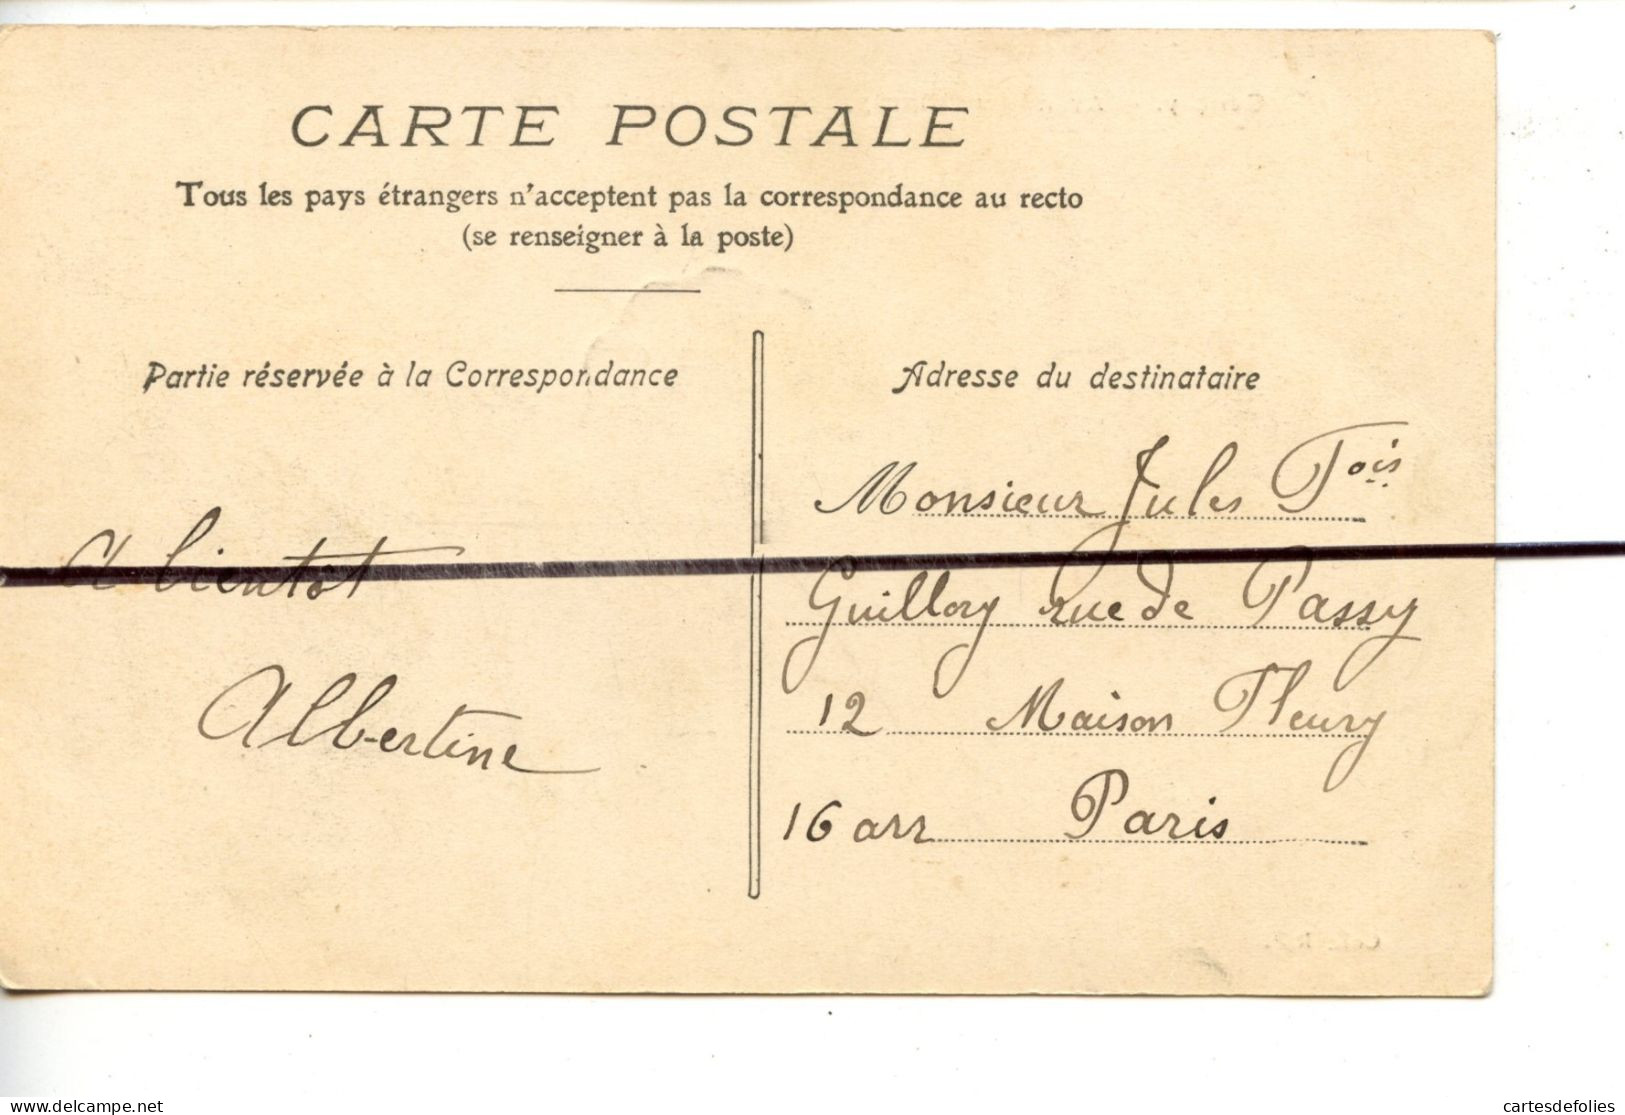 CARTE POSTALE
Tous les pays étrangers n'acceptent pas la correspondance au recto
(se renseigner à la poste)
Partie réservée à la Correspondance
A bientot
Albertine
Adresse du destinataire
Monsieur Jules Fois
Guillory rue de Passy
12 Maison Fleury
16 arr Paris
www.delcampe.net
cartesdefolies